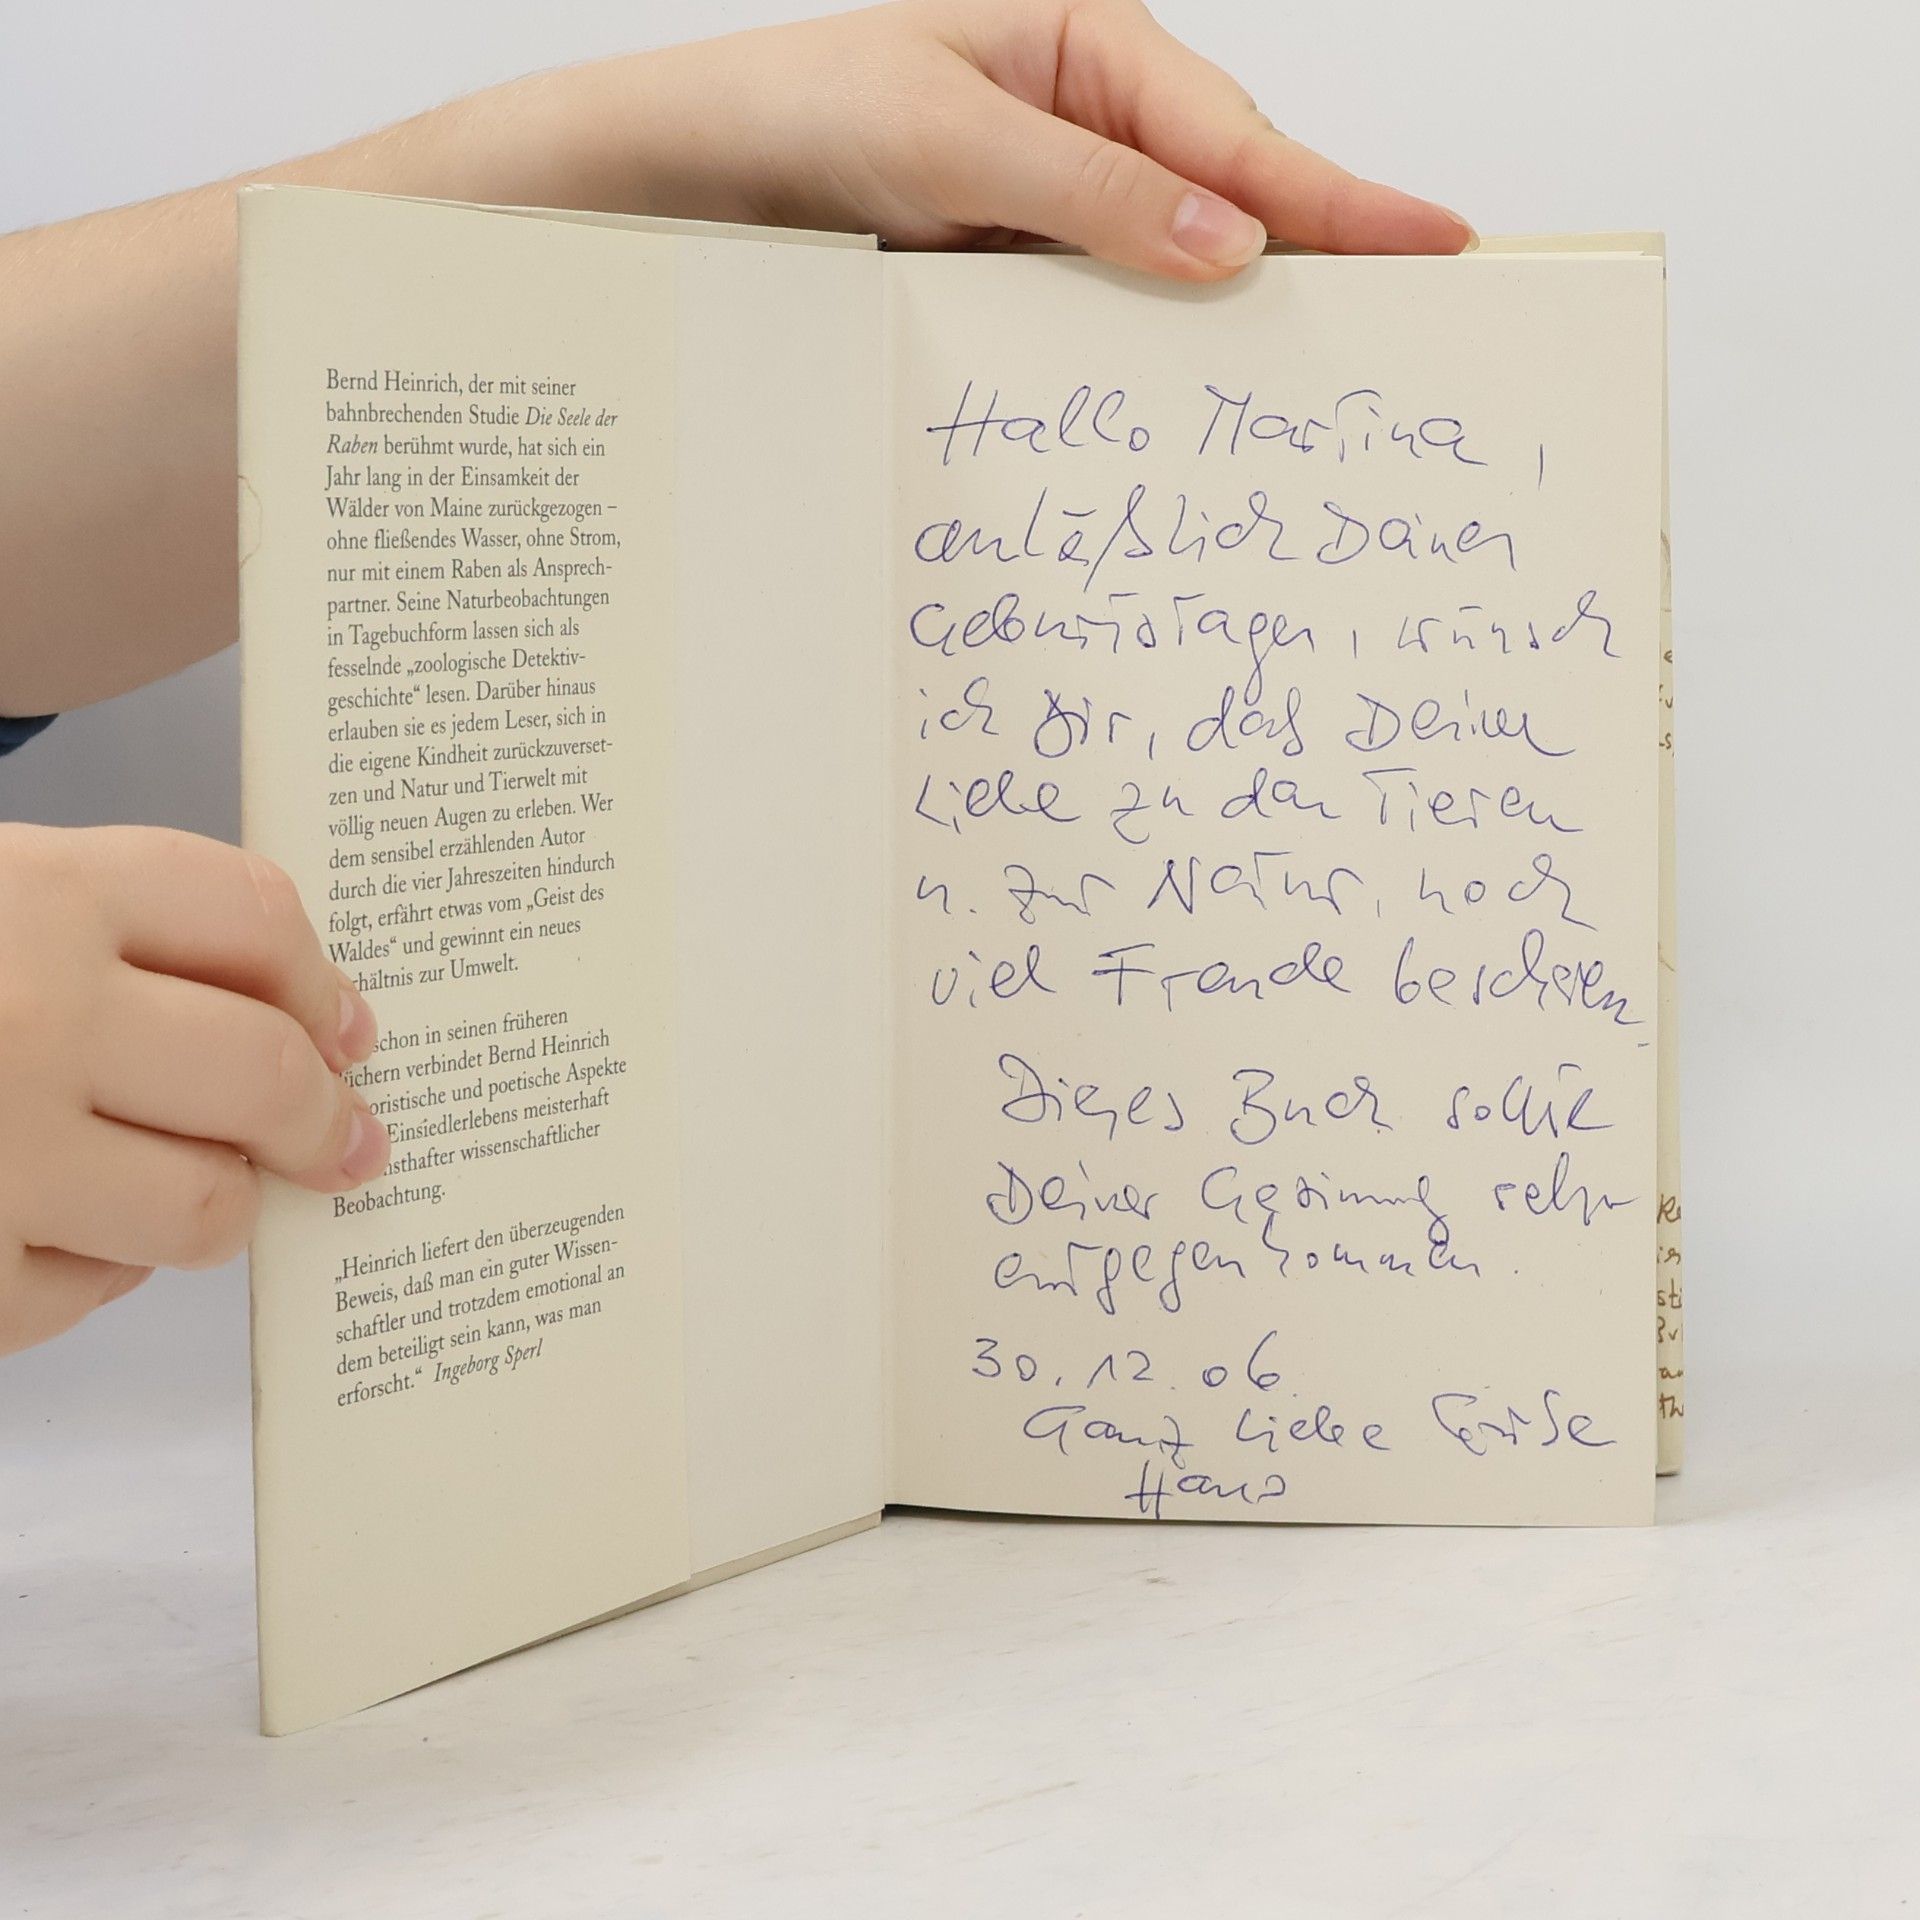 Bernd Heinrich, der mit seiner
bahnbrechenden Studie Die Seele der
Raben berühmt wurde, hat sich ein
Jahr lang in der Einsamkeit der
Wälder von Maine zurückgezogen –
ohne fließendes Wasser, ohne Strom,
nur mit einem Raben als Ansprech-
partner. Seine Naturbeobachtungen
in Tagebuchform lassen sich als
fesselnde „zoologische Detektiv-
geschichte“ lesen. Darüber hinaus
erlauben sie es jedem Leser, sich in
die eigene Kindheit zurückzuverset-
zen und Natur und Tierwelt mit
völlig neuen Augen zu erleben. Wer
dem sensibel erzählenden Autor
durch die vier Jahreszeiten hindurch
folgt, erfährt etwas vom „Geist des
Waldes“ und gewinnt ein neues
zur Umwelt.
schon in seinen früheren
verbindet Bernd Heinrich
und poetische Aspekte
Einsiedlerlebens meisterhaft
wissenschaftlicher
Beobachtung.
„Heinrich liefert den überzeugenden
Beweis, daß man ein guter Wissen-
schaftler und trotzdem emotional an
dem beteiligt sein kann, was man
erforscht.“ Ingeborg Sperl
Hallo Martina,
anläßlich Deines
Geburtstages, wünsch
ich Dir, daß Deine
Liebe zu den Tieren
u. zur Natur, noch
viel Freude bescheren.
Dieses Buch sollte
Deiner Gesinnung sehr
entgegenkommen.
30.12.06
Ganz liebe Grüße
Hans